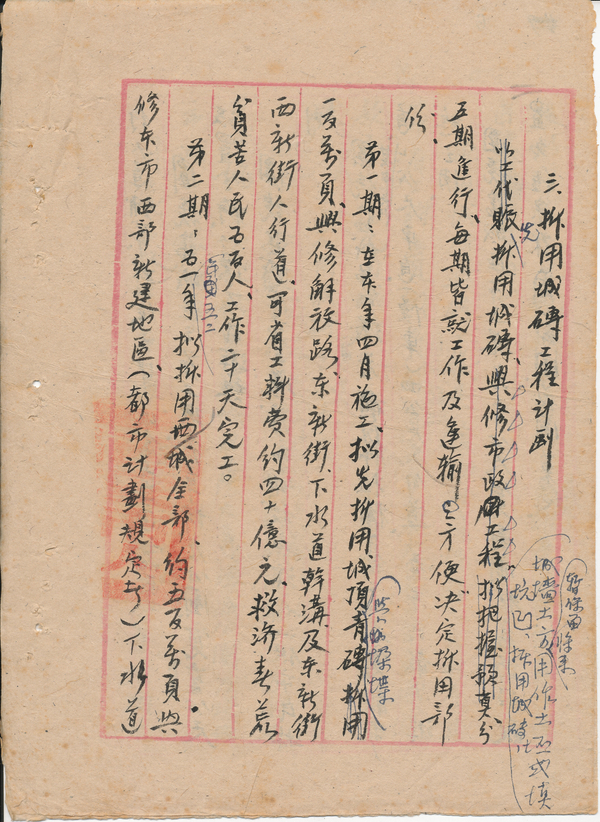 三、拆用城磚工程計劃
以工代賑，先拆用城磚，興修市政工程，拟把握預算分
五期進行，每期皆就工作及運輸上方便决定拆用部
份。
第一期：在本年四月施工，拟先拆用城頂青磚拆用
一百萬頁，興修解放路、东新街、下水道幹溝及东新街
西新街人行道，可省工料費約四十億元，救济春荒
貧苦人民五百人，工作二十天完工。
第二期：五一年拟拆用西城全部，約五百萬頁，興
修本市西部新建地區（都市计劃規定者）下水道
城墙土方用作土坯或填
坑凹，拆用城磚